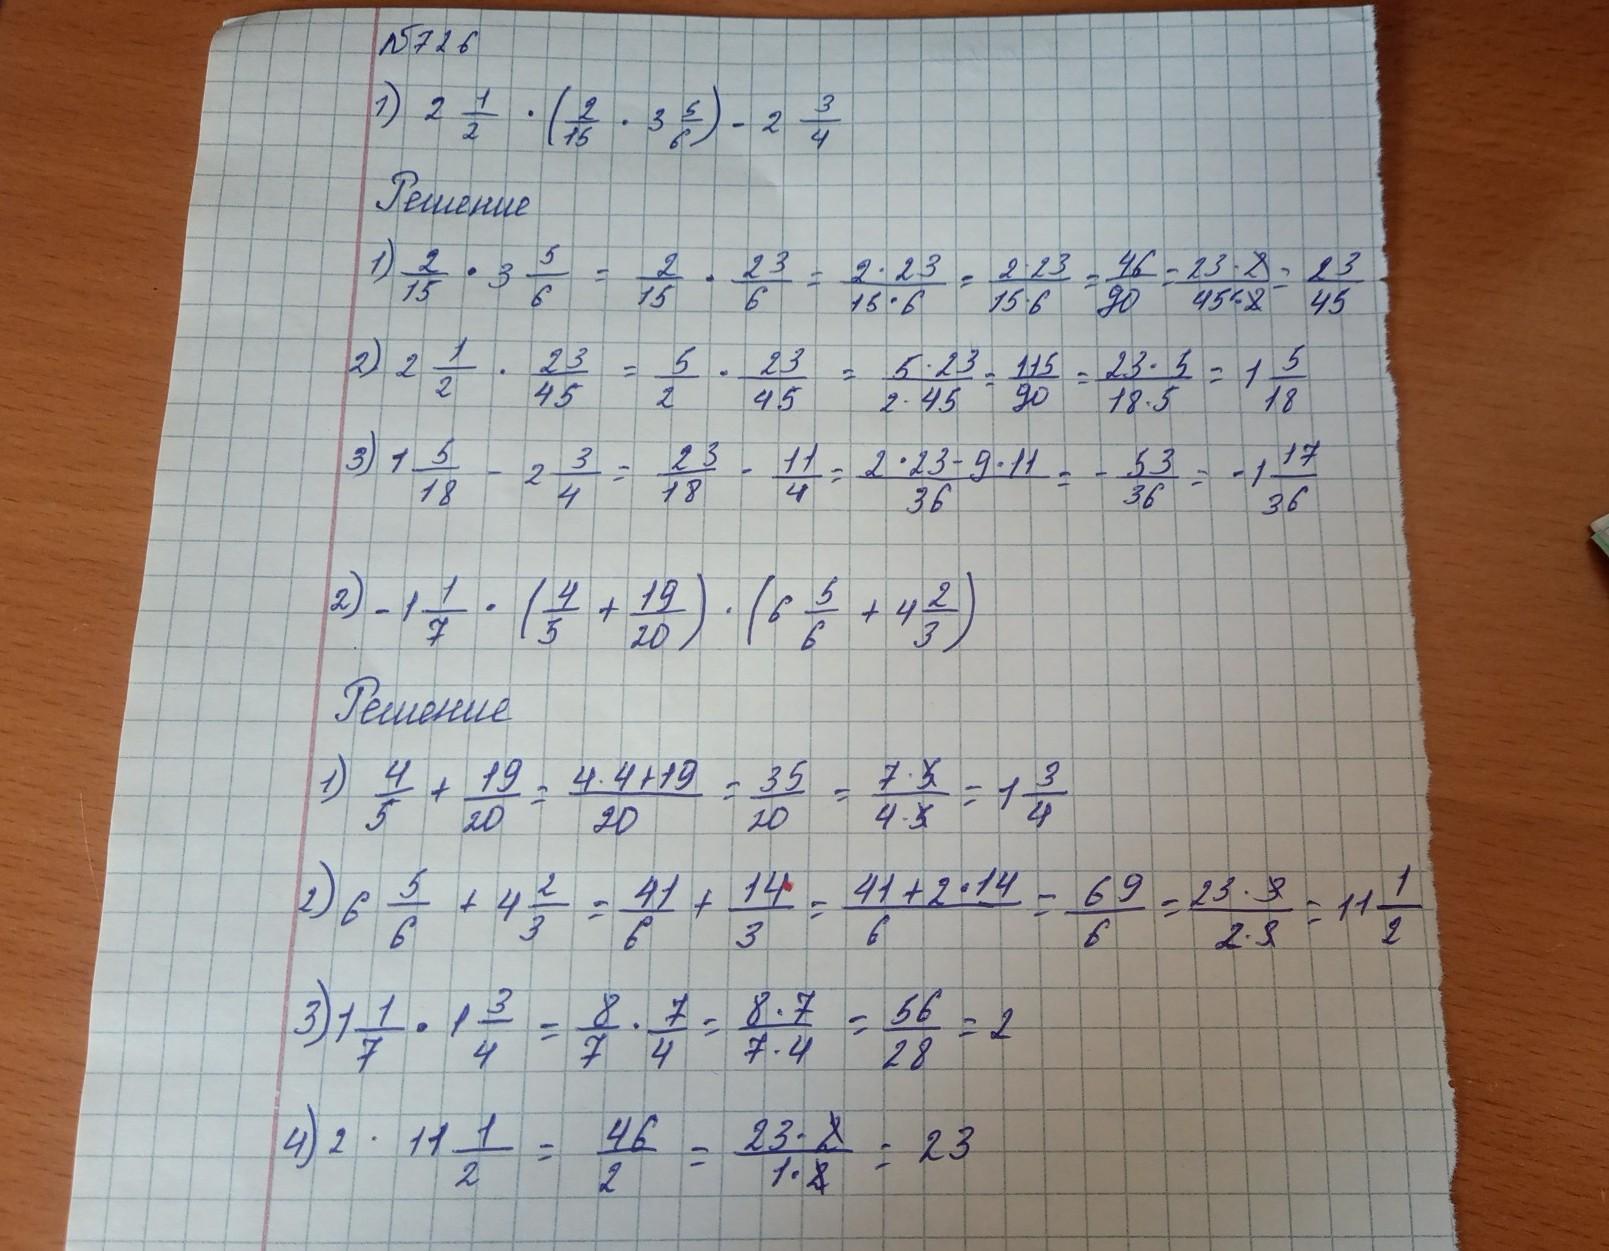 №726
1) 2 1/2 · (2/15 · 3 5/6) - 2 3/4
Решение
1) 2/15 · 3 5/6 = 2/15 · 23/6 = 2·23/15·6 = 2·23/15·6 = 46/90 = 23·2/45·2 = 23/45
2) 2 1/2 · 23/45 = 5/2 · 23/45 = 5·23/2·45 = 115/90 = 23·5/18·5 = 1 5/18
3) 1 5/18 - 2 3/4 = 23/18 - 11/4 = 2·23-9·11/36 = - 53/36 = -1 17/36
2) -1 1/7 · (4/5 + 19/20) · (6 5/6 + 4 2/3)
Решение
1) 4/5 + 19/20 = 4·4+19/20 = 35/20 = 7·5/4·5 = 1 3/4
2) 6 5/6 + 4 2/3 = 41/6 + 14/3 = 41+2·14/6 = 69/6 = 23·3/2·3 = 11 1/2
3) 1 1/7 · 1 3/4 = 8/7 · 7/4 = 8·7/7·4 = 56/28 = 2
4) 2 · 11 1/2 = 46/2 = 23·2/1·2 = 23